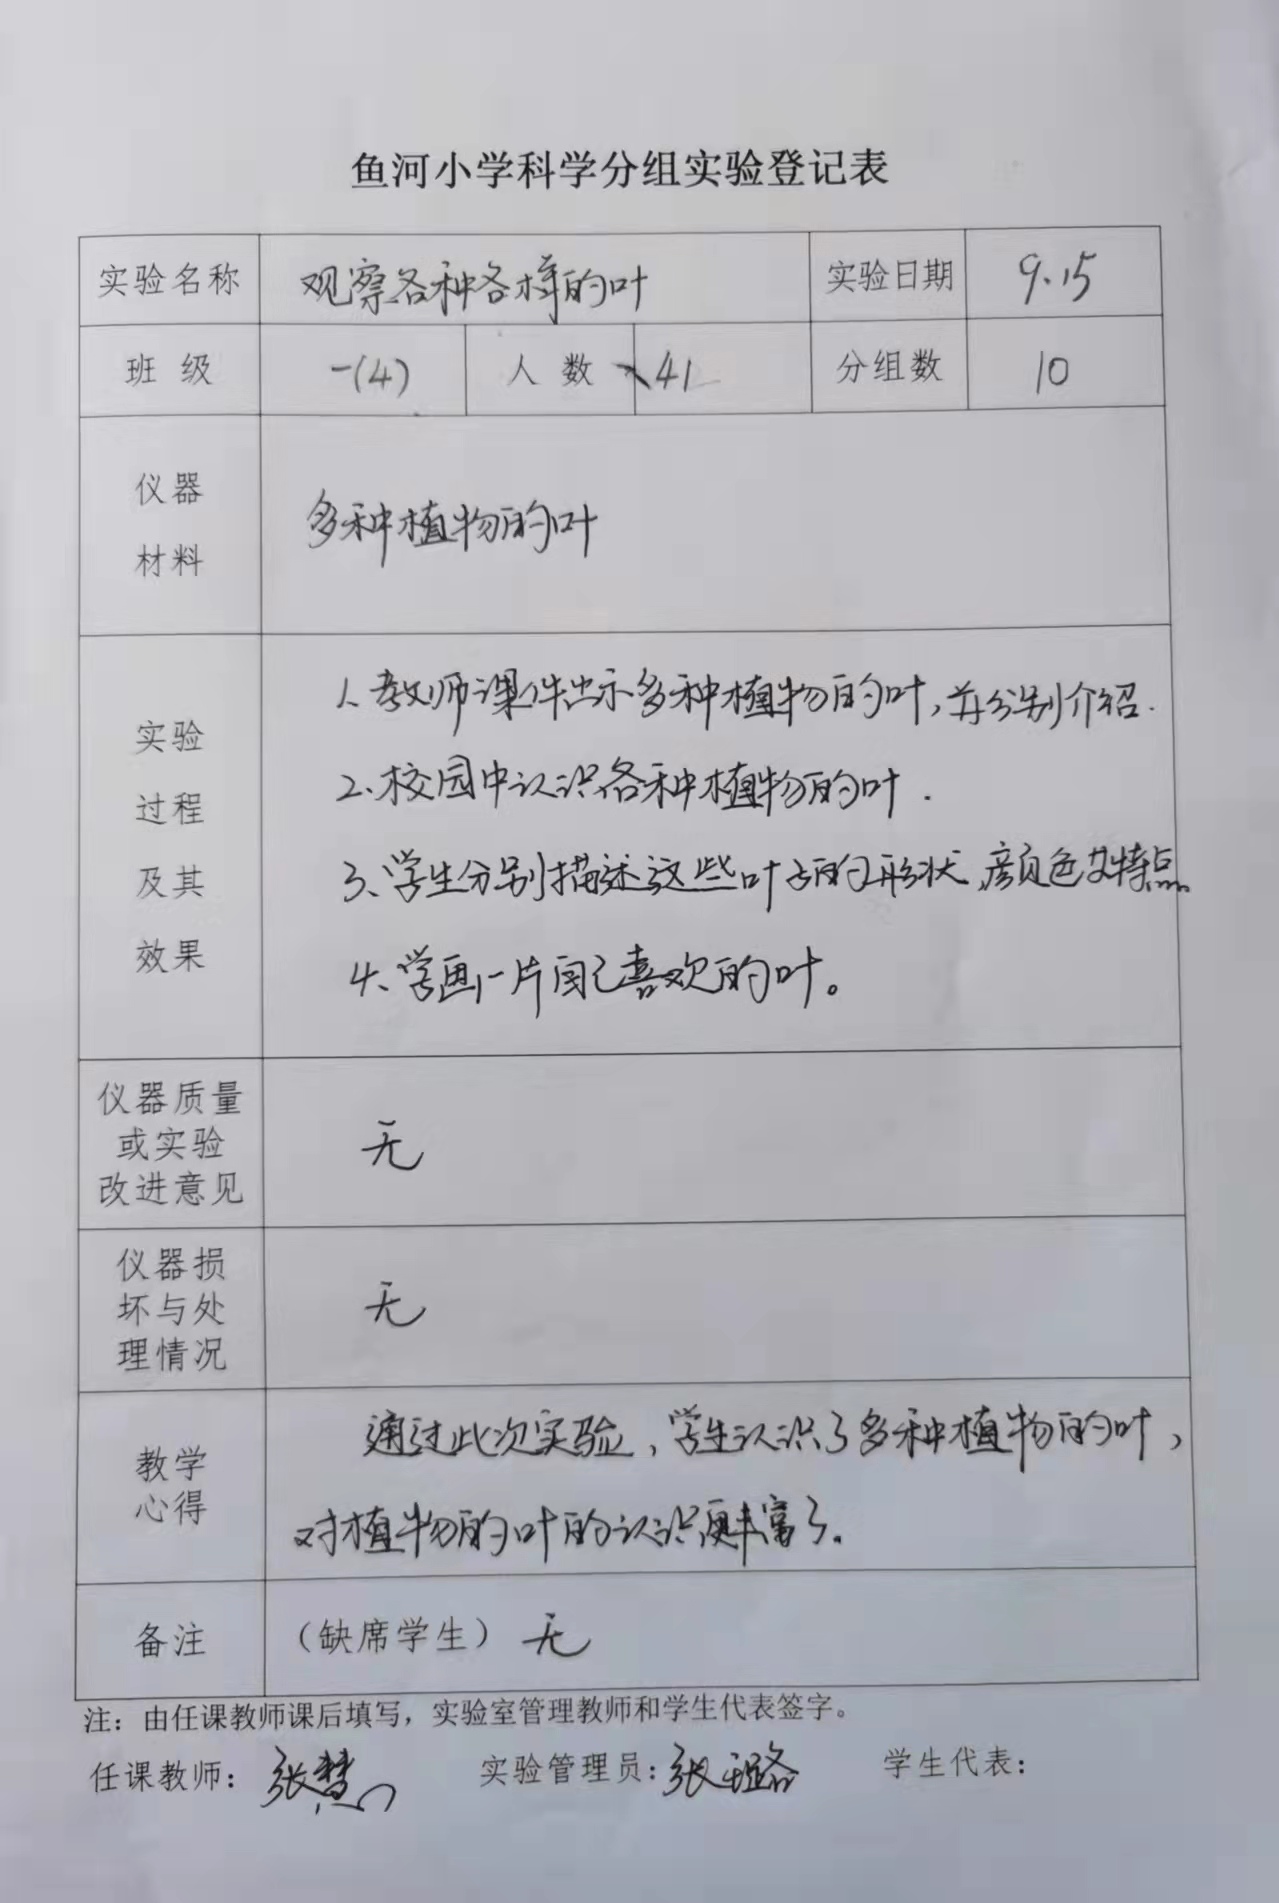 鱼河小学科学分组实验登记表
实验名称 观察各种各样的叶 实验日期 9.15
班 级 一(4) 人 数 41 分组数 10
仪器
材料
多种植物的叶
实验
过程
及其
效果
1、教师课件出示多种植物的叶，并分别介绍.
2、校园中认识各种植物的叶.
3、学生分别描述这些叶子的形状、颜色及特点
4、学画一片自己喜欢的叶。
仪器质量
或实验
改进意见
无
仪器损
坏与处
理情况
无
教学
心得
通过此次实验，学生认识了多种植物的叶，
对植物的叶的认识更丰富了。
备注 （缺席学生） 无
注：由任课教师课后填写，实验室管理教师和学生代表签字。
任课教师：张慧 实验管理员：张璐 学生代表：